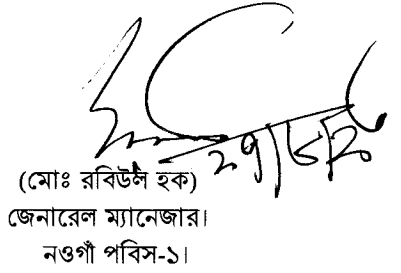 (মোঃ রবিউল হক)
জেনারেল ম্যানেজার।
নওগাঁ পবিস-১।